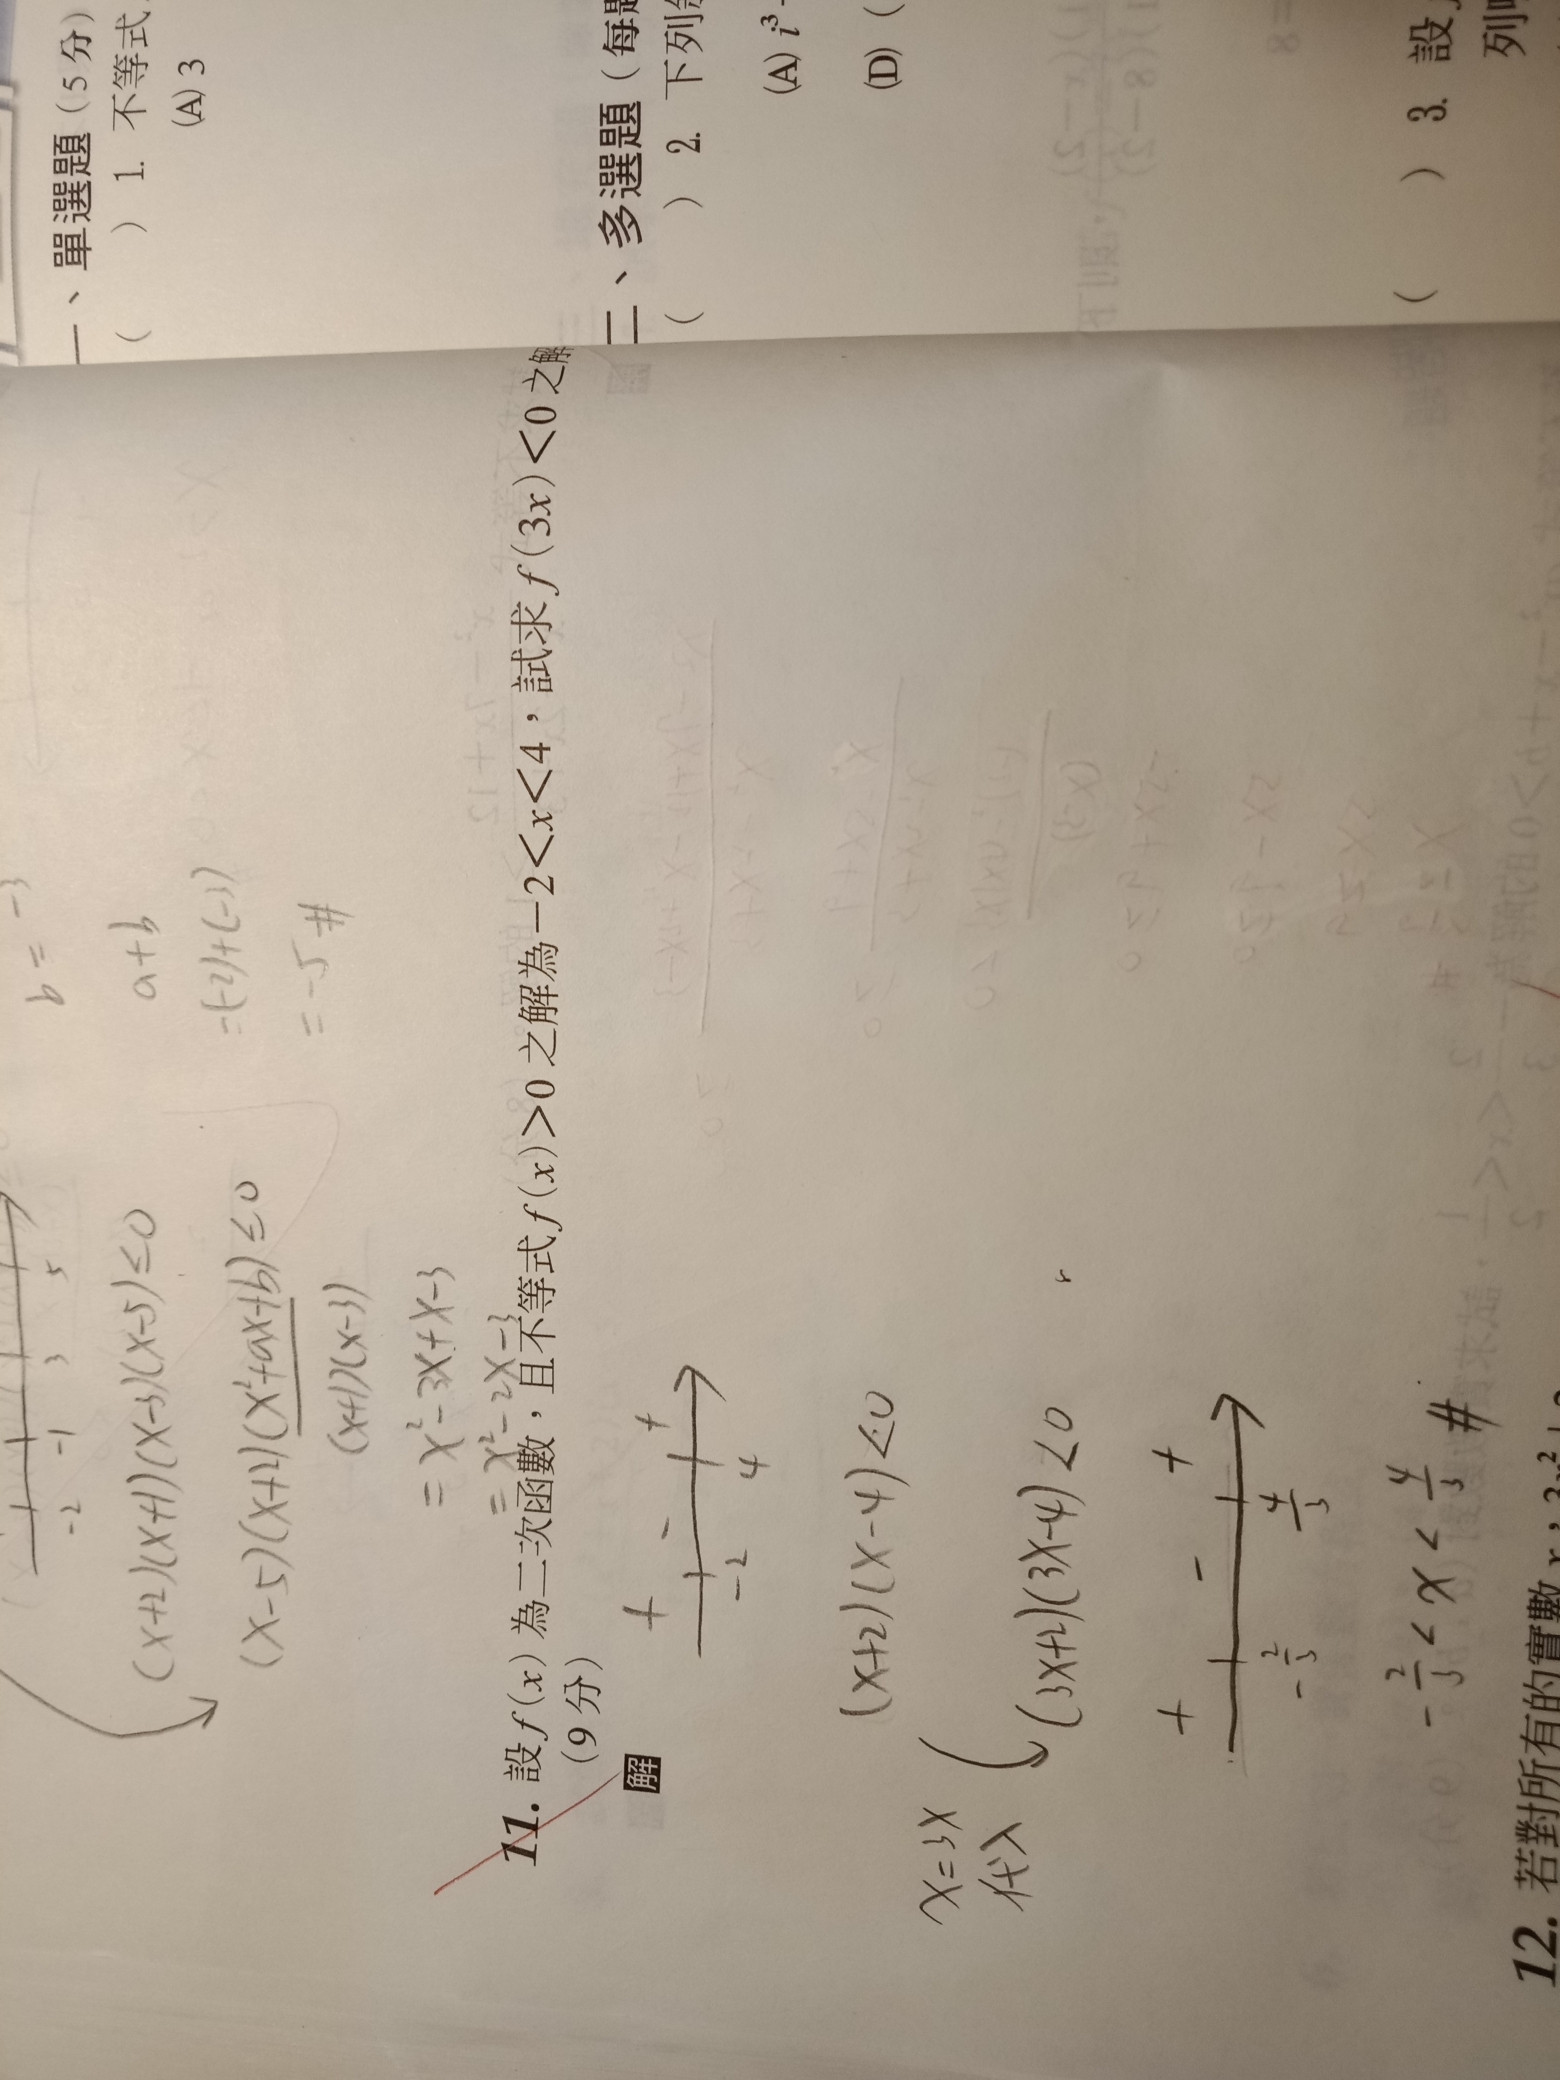 b = -3
a+b
=(-2)+(-3)
= -5 #
-2 -1 3 5
(x+2)(x+1)(x-3)(x-5)≤0
(x-5)(x+2)(x²+ax+b)≤0
(x+1)(x-3)
= x²-3x+x-3
= x²-2x-3
11. 設 f(x) 為二次函數,且不等式 f(x)>0 之解為-2<x<4,試求 f(3x)<0 之解
(9 分)
解
+ - +
-2 4
(x+2)(x-4)<0
x=3x
代入
(3x+2)(3x-4)<0
+ - +
-2/3 4/3
-2/3 < x < 4/3 #
12. 若對所有的實數 x,3x²
一、單選題(5 分)
( ) 1. 不等式
(A) 3
二、多選題(每題
( ) 2. 下列
(A) i³
(D) (
( ) 3. 設
列